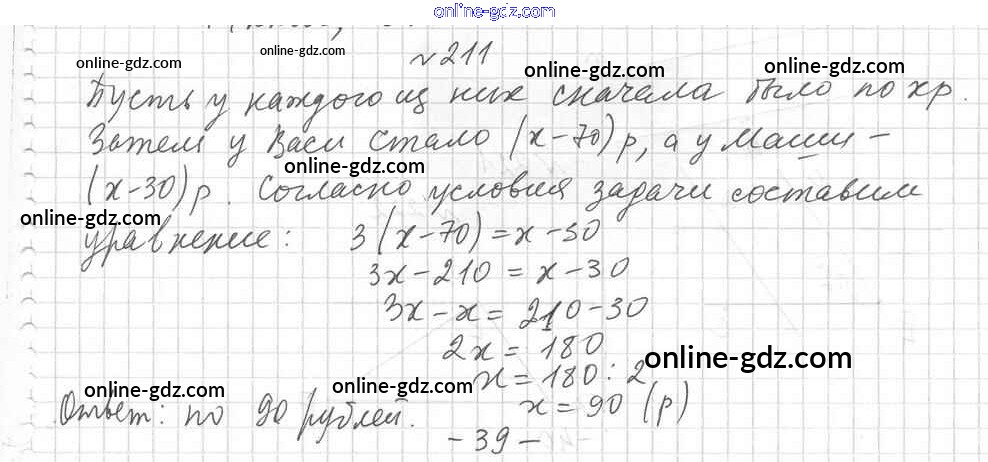 online-gdz.com
№211
online-gdz.com online-gdz.com online-gdz.com online-gdz.com
Пусть у каждого из них сначала было по x р.
Затем у Васи стало (x-70) р, а у Маши -
online-gdz.com
(x-30) р. Согласно условия задачи составим
online-gdz.com
уравнение: 3(x-70)=x-30
3x-210=x-30
3x-x=210-30
2x=180
online-gdz.com
x=180:2
online-gdz.com online-gdz.com
Ответ: по 90 рублей. x=90 (р)
-39-